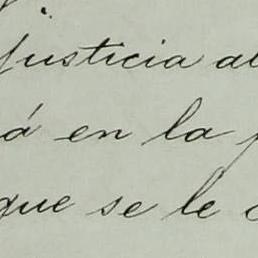 justicia al
á en la
que se le